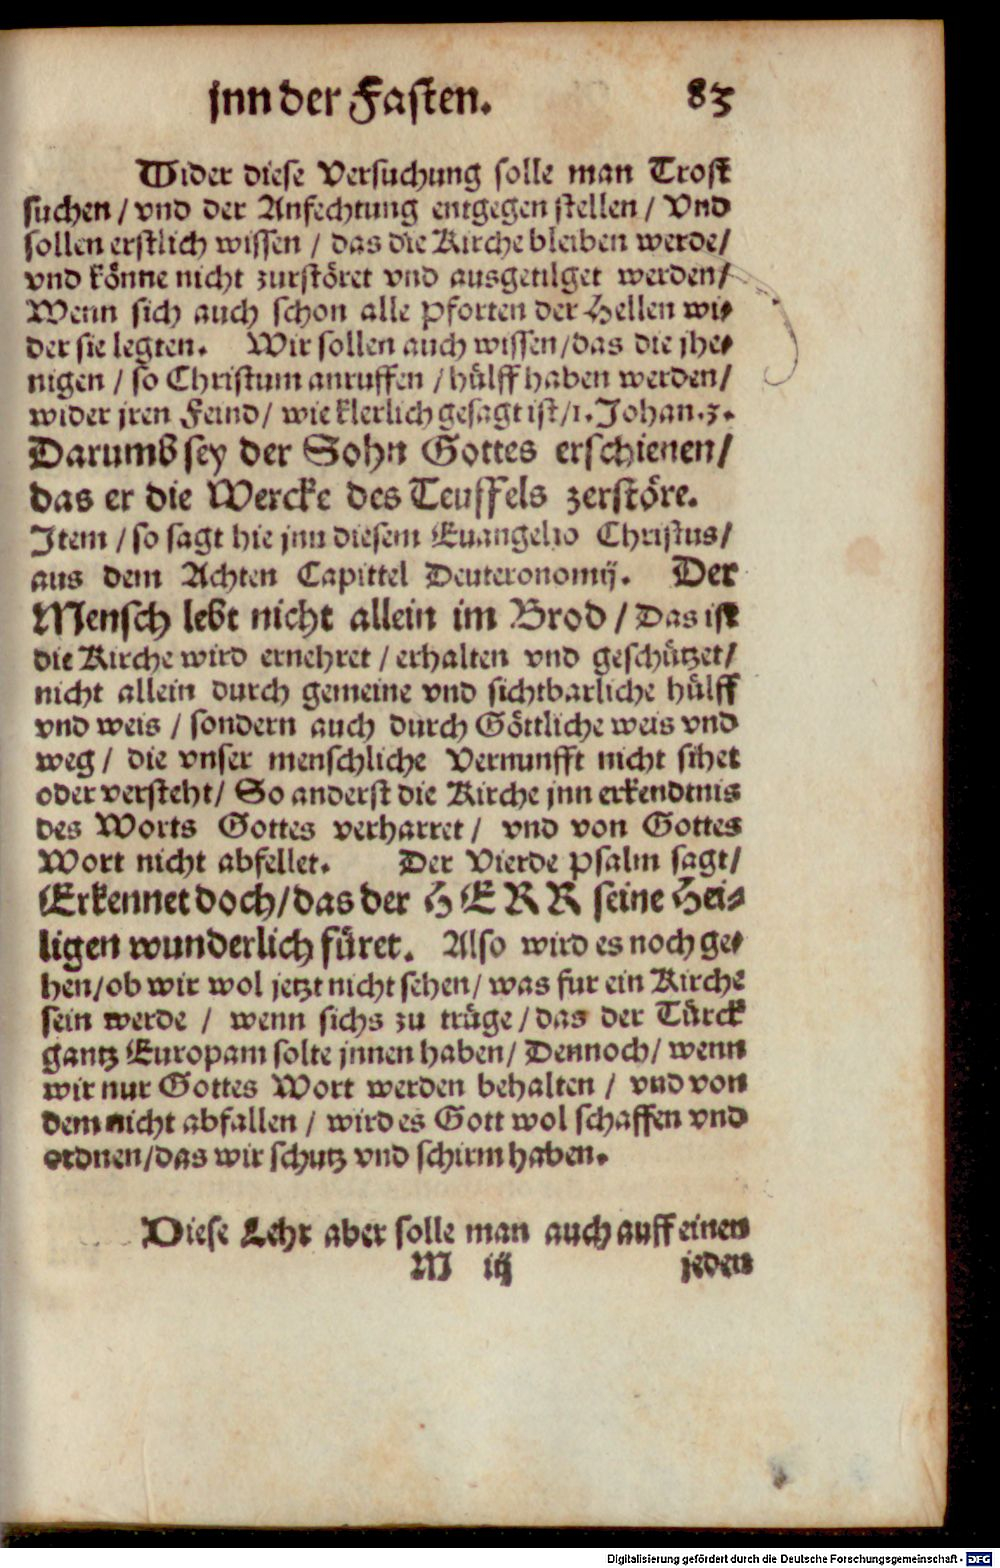 jnn der Fasten. 83
Wider diese Versuchung solle man Trost
suchen / vnd der Anfechtung entgegen stellen / Vnd
sollen erstlich wissen / das die Kirche bleiben werde /
vnd könne nicht zurstöret vnd ausgetilget werden /
Wenn sich auch schon alle Pforten der Hellen wi-
der sie legten. Wir sollen auch wissen / das die jhe-
nigen / so Christum anruffen / hülff haben werden /
wider jren Feind / wie klerlich gesagt ist / 1. Johan. 3.
Darumb sey der Sohn Gottes erschienen /
das er die Wercke des Teuffels zerstöre.
Item / so sagt hie jnn diesem Euangelio Christus /
aus dem Achten Capittel Deuteronomij. Der
Mensch lebt nicht allein im Brod / Das ist
die Kirche wird ernehret / erhalten vnd geschützet /
nicht allein durch gemeine vnd sichtbarliche hülff
vnd weis / sondern auch durch Göttliche weis vnd
weg / die vnser menschliche Vernunfft nicht sihet
oder versteht / So anderst die Kirche jnn erkendtnis
des Worts Gottes verharret / vnd von Gottes
Wort nicht abfellet. Der Vierde Psalm sagt /
Erkennet doch / das der HERR seine Hei-
ligen wunderlich füret. Also wird es noch ge-
hen / ob wir wol jetzt nicht sehen / was fur ein Kirche
sein werde / wenn sichs zu trüge / das der Türck
gantz Europam solte jnnen haben / Dennoch / wenn
wir nur Gottes Wort werden behalten / vnd von
dem nicht abfallen / wird es Gott wol schaffen vnd
ordnen / das wir schutz vnd schirm haben.
Diese Lehr aber solle man auch auff einen
M iij jeden
Digitalisierung gefördert durch die Deutsche Forschungsgemeinschaft - DFG